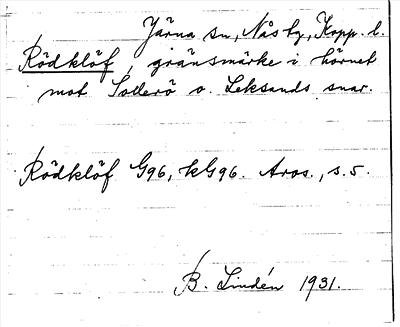 Järna sn, Nås tg, Kopp. l.
Rödklöf, gränsmärke i hörnet
mot Sollerö o. Leksands snar.
Rödklöf G96, kG96. Aros., s.5.
B. Lindén 1931.